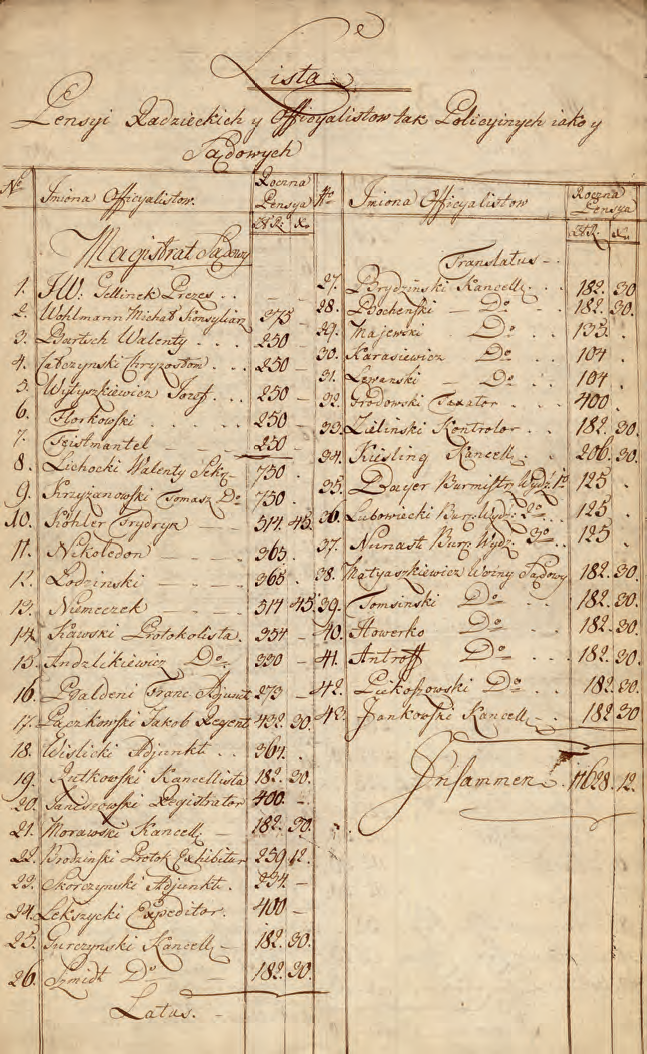 Lista
Pensyi Radzieckich y Officyalistow tak Policyinych iako y
Sądowych
No Imiona Officyalistow. Roczna Pensya
ZłR: Xr.
Magistrat Sądowy
1. JW: Gellinek Prezes . . - -
2. Wohlmann Michał Konsyliarz 375 -
3. Bartsch Walenty . . . . 250 -
4. Łabczynski Chryzostom . . 250 -
5. Wytyszkiewicz Jozef . . 250 -
6. Florkowski . . . . . 250 -
7. Teistmantel - - - 250 -
8. Lichocki Walenty Sekr: 750 .
9. Krzyżanowski Tomasz Do 750 .
10. Köhler Frydryk - - 514 45.
11. Nikoledon - - - 365 .
12. Lodzinski - - - - 365 .
13. Niemeczek - - - . 514 45.
14. Kawski Protokolista . 354 -
15. Andzlikiewicz Do . . 330 -
16. Galdeni Franc: Adjunct 273 -
17. Pączkowski Jakob Regent 432 30.
18. Wislicki Adjunkt . . 364 .
19. Rutkowski Kancellista 182. 30.
20. Janiszowski Registrator 400. -
21. Morawski Kancell: - 182. 30.
22. Brodzinski Protok Exhibitur 259 12.
23. Skorczynski Adjunkt . 234 -
24. Lekszycki Expeditor. 400 -
25. Gurczynski Kancell: - 182. 30.
26. Szmidt Do - - 182. 30.
Latus. -
No Imiona Officyalistow Roczna Pensya
ZłR: Xr.
Translatus - .
27. Brydzinski Kancell: . . 182. 30
28. Bochenski - Do - . . 182. 30.
29. Majewski Do . . 135. .
30. Karasiewicz Do . . 104 .
31. Lewanski - Do . . 104 .
32. Grodowski Taxator . . 400 .
33. Zielinski Kontrolor . . 182. 30.
34. Kiesling Kancell: . . 206. 30.
35. Bayer Burmistr: Wydź: 1o 125 .
36. Lubowiecki Burm: Wydz: 2o . . 125 .
37. Nunast Burm: Wydz: 3o . . 125 .
38. Matyaszkiewicz Wozny Sądowy 182. 30.
39. Tomsinski Do . . 182. 30.
40. Howerko Do . . 182. 30.
41. Antroff Do . . . 182. 30.
42. Lukoszowski Do . . 182. 30.
43. Jankowski Kancell: - . . 182 30
Insammen . 11628. 12.